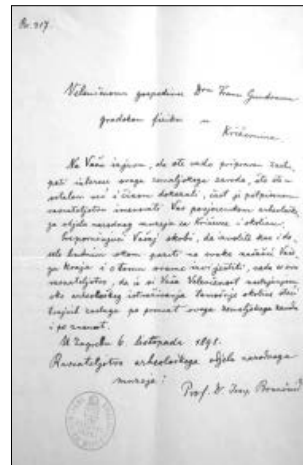 Br. 217.
Velemožnomu gospodinu Dru Franu Gundrumu
gradskom fiziku u
Križevcima.
Na Vašu izjavu, da ste vrlo pripravni zastu-
pati interese ovoga zemaljskoga zavoda, što ste u
ostalom već i činom dokazali, čast je potpisanom
ravnateljstvu imenovati Vas povjerenikom arheološko-
ga odjela narodnog muzeja za Križevce i okolicu.
Preporučujući Vašoj skrbi, da izvolite kao i do
sele budnim okom paziti na svako
i o tomu ovamo izvjestiti, nada se ovo
ravnateljstvo, da će si Vaša Velemožnost
oko arheološkog istraživanja tamošnje okolice steći
trajnih zasluga po ovoga zemaljskoga zavoda
i po znanost.
U Zagrebu 6. listopada 1891.
Ravnateljstvo arheološkoga odjela narodnoga
muzeja:
Prof. Dr. Josip Brunšmid